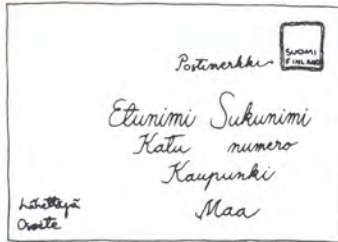 Postimerkki
SUOMI
FINLAND
Etunimi Sukunimi
Katu numero
Kaupunki
Maa
Lähettäjä
Osoite